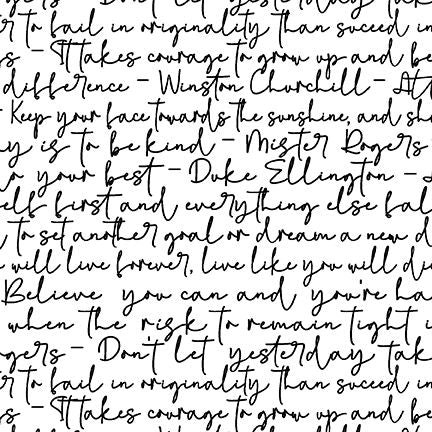 Don't let yesterday
r to fail in originality than suceed in
s - It takes courage to grow up and be
difference - Winston Churchill - Att
Keep your face towards the sunshine, and sh
y is to be kind - Mister Rogers
o your best - Duke Ellington -
elf first and everything else fal
to set another goal or dream a new d
will live forever, live like you will di
Believe you can and you're ha
when the risk to remain tight i
ogers - Don't let yesterday tak
r to fail in originality than suceed in
s - It takes courage to grow up and be
Winston Churchill